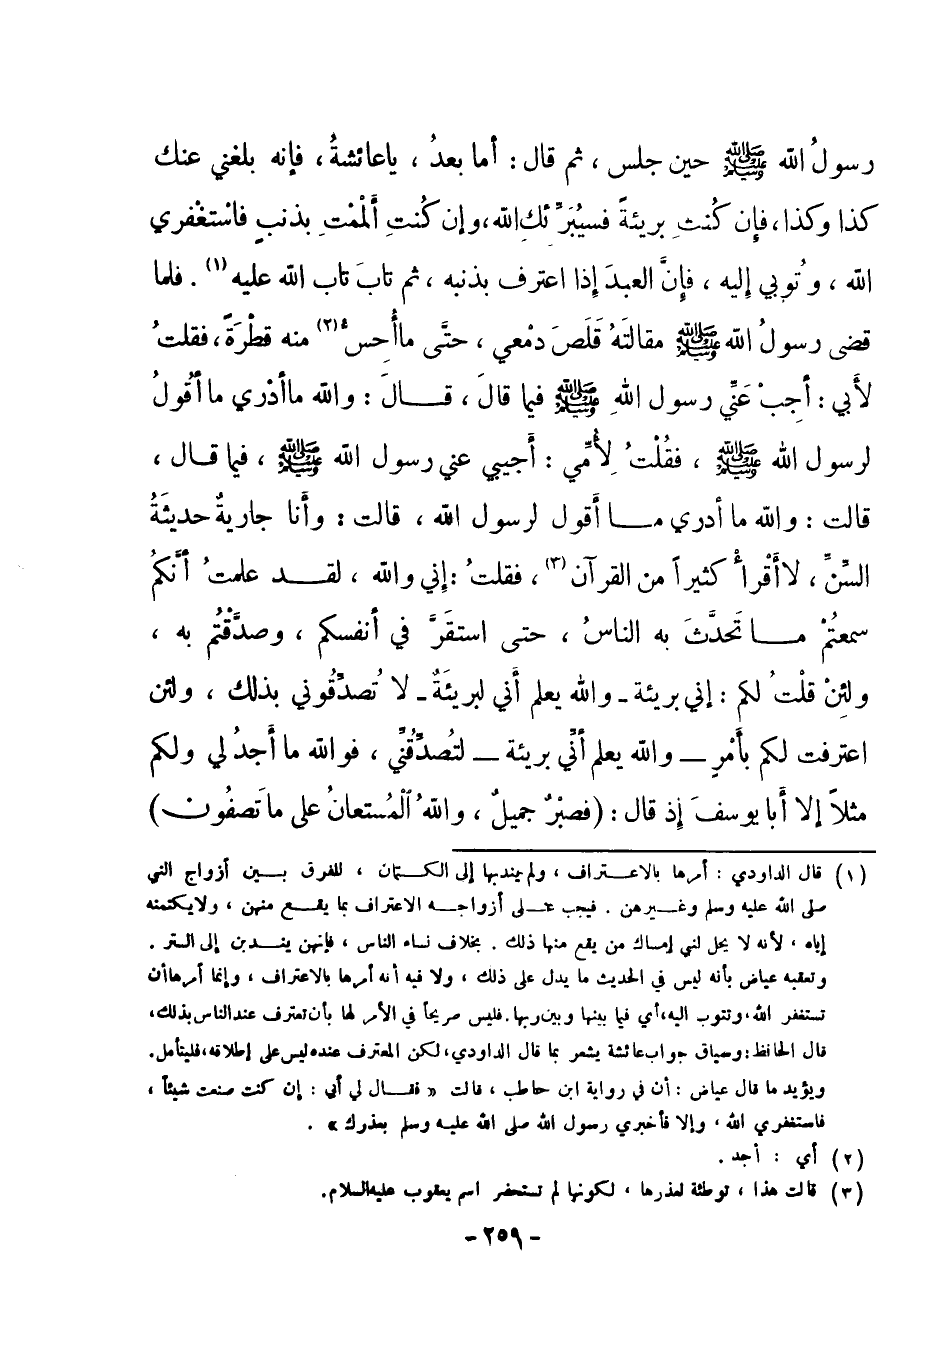 رسولُ الله ﷺ حين جلس ، ثم قال : أما بعدُ ، ياعائشةُ ، فإنه بلغني عنك
كذا وكذا ، فإن كُنتِ بريئةً فسيُبَرِّئك الله ، وإن كُنتِ أَلْمَمْتِ بذنبٍ فاسْتَغْفري
الله ، وتُوبي إليه ، فإنَّ العبدَ إذا اعترف بذنبه ، ثم تابَ تاب الله عليه (١) . فلما
قضى رسولُ الله ﷺ مقالتَهُ قَلَصَ دمْعي ، حتَّى ماأُحس ُّ (٢) منه قطْرَةً ، فقلتُ
لأَبي : أَجِبْ عَنِّي رسول اللهِ ﷺ فيما قالَ ، قـــال : والله ماأدْري ما أقُولُ
لرسول الله ﷺ ، فقُلْتُ لأُمِّي : أجيبي عني رسول الله ﷺ ، فيما قـال ،
قالت : والله ما أدري مـــا أقول لرسول الله ، قالت : وأنا جاريةٌ حديثَةُ
السِّنِّ ، لاأَقْرأُ كثيراً من القرآن (٣) ، فقلتُ : إني والله ، لقـد علمتُ أنَّكم
سمعتُمْ مـــا تَحَدَّثَ به الناسُ ، حتى استقَرَّ في أنفسكم ، وصدَّقْتُم به ،
ولئِنْ قلْتُ لكم : إني بريئة ـ والله يعلم أني لبريئةٌ ـ لا تُصدِّقُوني بذلك ، ولئن
اعترفت لكم بأَمْرٍ ــ والله يعلم أنِّي بريئة ــ لتُصدِّقُنِّي ، فوالله ما أجدُ لي ولكم
مثلاً إلا أبا يوسفَ إذ قال : (فصبْرٌ جميلٌ ، واللهُ المُستعانُ على ماتَصفُون)
(١) قال الداودي : أمرها بالاعــتراف ، ولم يندبها إلى الكـتمان ، للفرق بــين أزواج النبي
صلى الله عليه وسلم وغـيرهن . فيجب عــلى أزواجــه الاعتراف بما يقــع منهن ، ولايكتمنه
إياه ، لأنه لا يحل لنبي إمساك من يقع منها ذلك . بخلاف نساء الناس ، فإنهن ينـدبن إلى الستر .
وتعقبه عياض بأنه ليس في الحديث ما يدل على ذلك ، ولا فيه أنه أمرها بالاعتراف ، وإنما أمرهاأن
تستغفر الله ، وتتوب اليه ، أي فيما بينها وبين ربها . فليس صريحاً في الأمر لها بأن تعترف عندالناس بذلك ،
قال الحافظ : وسياق جواب عائشة يشعر بما قال الداودي ، لكن المعترف عنده ليس على إطلاقه ، فليتأمل .
ويؤيد ما قال عياض : أن في رواية ابن حاطب ، قالت « فقـال لي أبي : إن كنت صنعت شيئاً ،
فاستغفري الله ، وإلا فأخبري رسول الله صلى الله عليـه وسلم بعذرك » .
(٢) أي : أجد .
(٣) قالت هذا ، توطئة لعذرها ، لكونها لم تستحضر اسم يعقوب عليه السلام .
- ٢٥٩ -